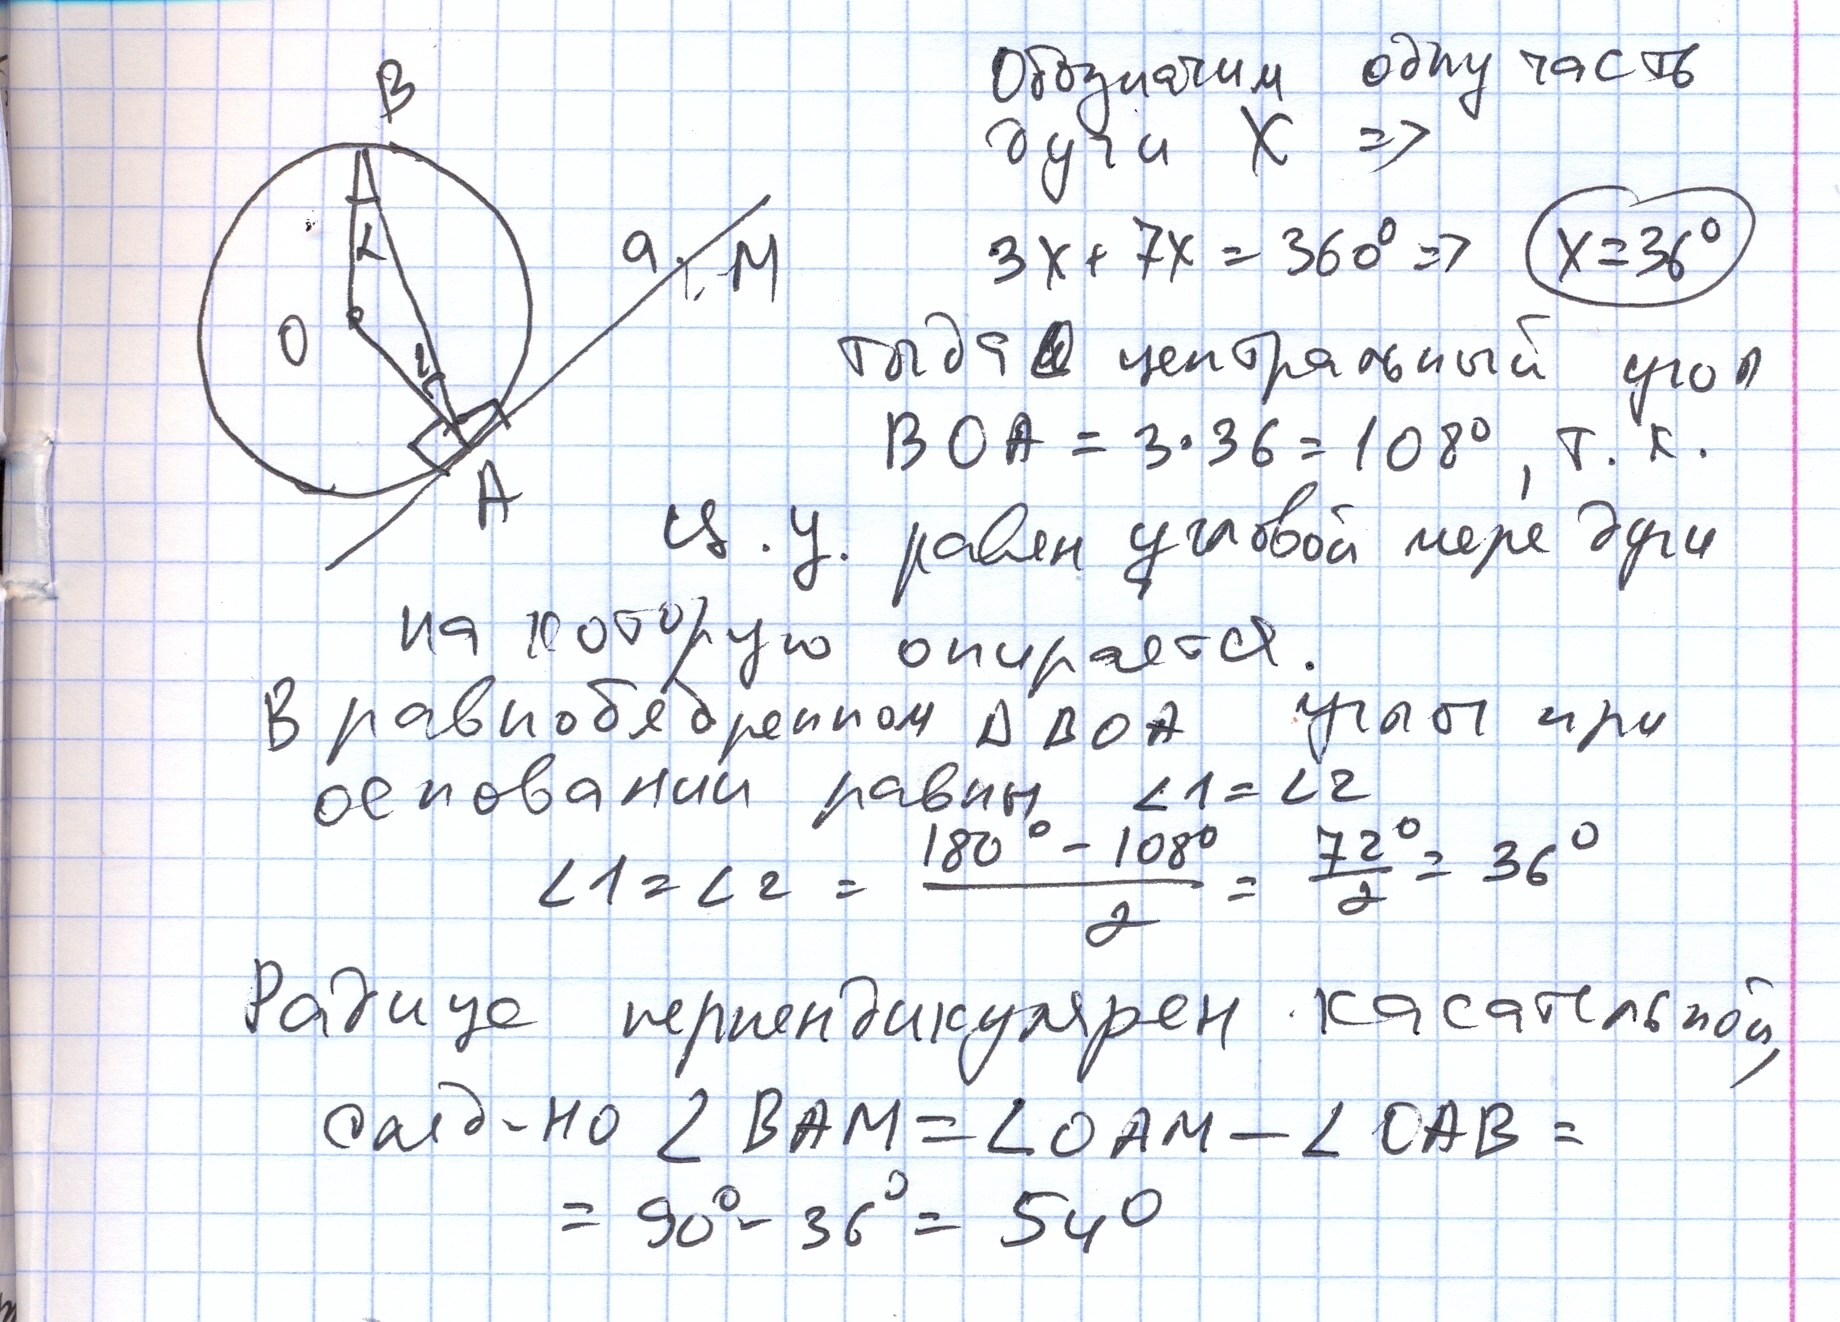 Обозначим одну часть
дуги X =>
3X + 7X = 360° => X = 36°
тогда центральный угол
BOA = 3·36 = 108°, т.к.
ц.у. равен угловой мере дуги
на которую опирается.
В равнобедренном ΔBOA углы при
основании равны ∠1 = ∠2
∠1 = ∠2 = (180° - 108°)/2 = 72°/2 = 36°
Радиус перпендикулярен касательной,
след-но ∠BAM = ∠OAM - ∠OAB =
= 90° - 36° = 54°
B
a
M
O
2
A